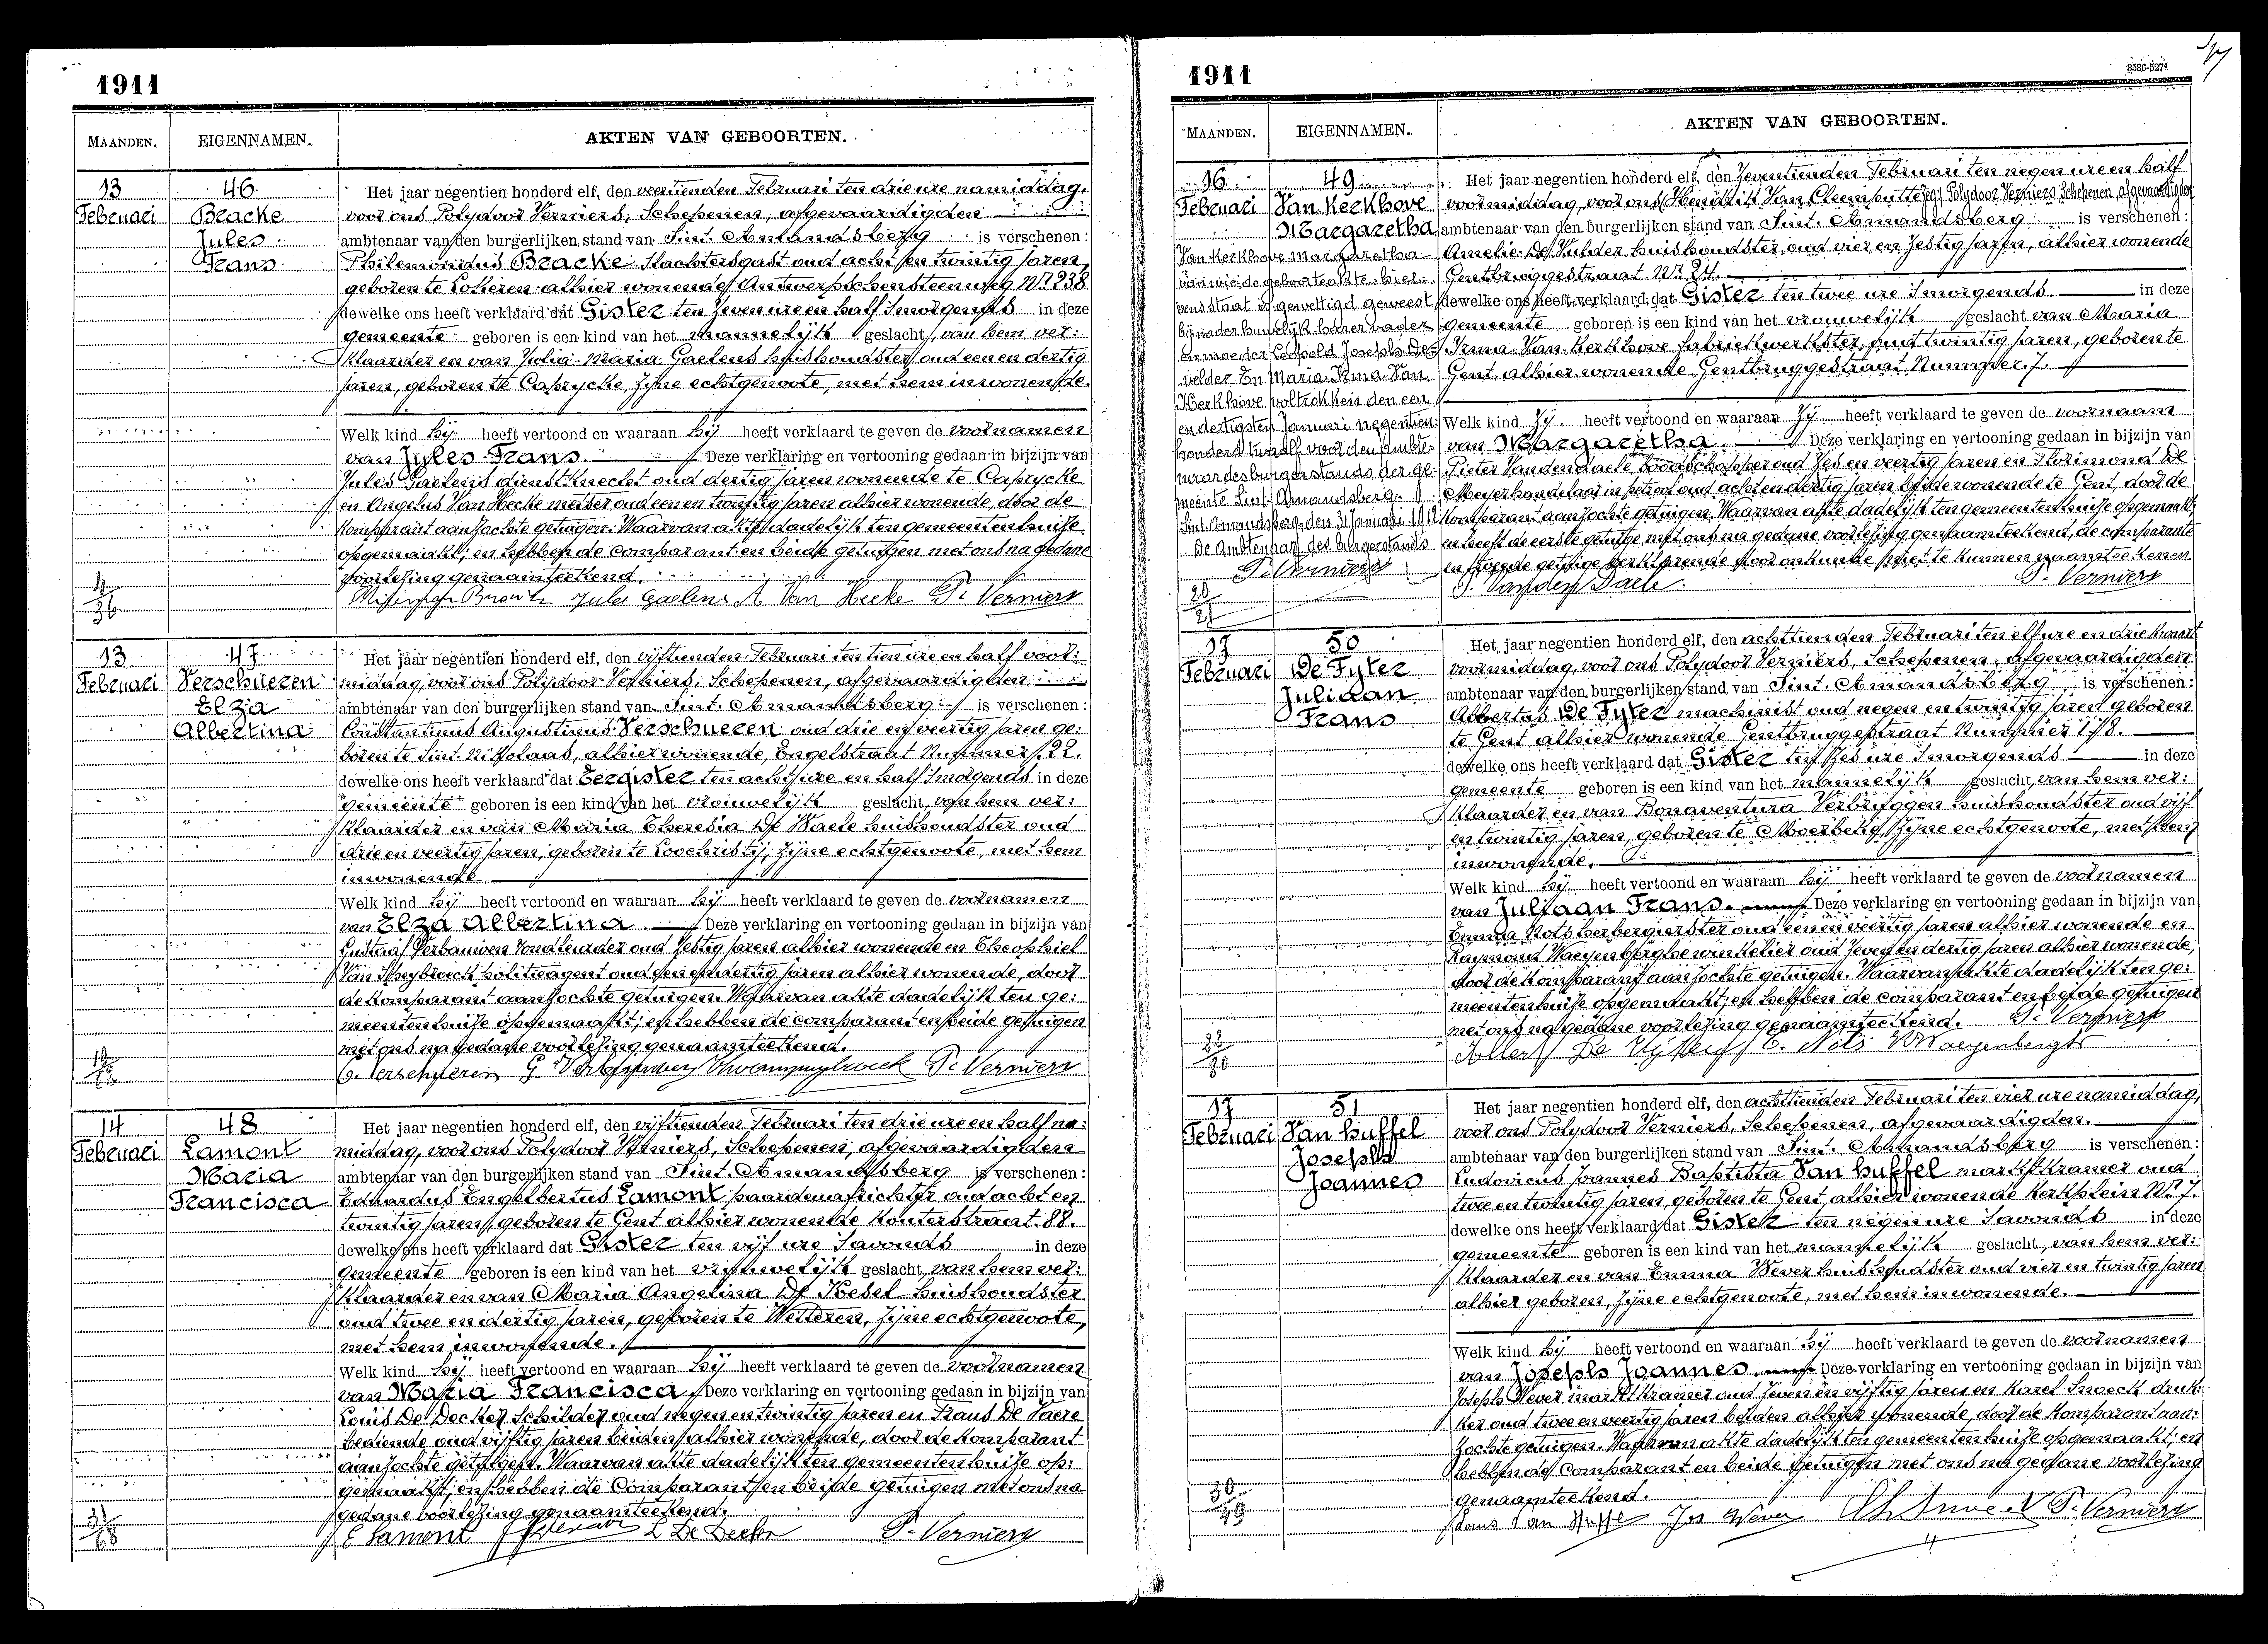 1911
MAANDEN. EIGENNAMEN. AKTEN VAN GEBOORTEN.
13 Februari
46
Bracke
Jules
Frans
Het jaar negentien honderd elf, den veertienden Februari ten drie ure namiddag,
voor ons Polydoor Verniers, Schepenen, afgevaardigden
ambtenaar van den burgerlijken stand van Sint. Amandsberg is verschenen:
Philemondus Bracke slachtersgast oud acht en twintig jaren,
geboren te Loheren alhier wonende Antwerpschensteenweg Nr. 238
dewelke ons heeft verklaard dat Gister ten zeven ure en half 'smorgends in deze
gemeente geboren is een kind van het mannelijk geslacht, van hem ver:
klaarder en van Julia Maria Gaelens huishoudster oud een en dertig
jaren, geboren te Caprycke, zijne echtgenoote, met hem inwonende.
Welk kind hij heeft vertoond en waaraan hij heeft verklaard te geven de voornamen
van Jules Frans. Deze verklaring en vertooning gedaan in bijzijn van
Jules Gaelens dienstknecht oud dertig jaren wonende te Caprycke
en Angelus Van Hecke metser oud een en twintig jaren alhier wonende, door de
komparant aanzochte getuigen. Waarvan akte dadelijk ten gemeentenhuize
opgemaakt; en hebben de comparant en beide getuigen met ons na gedane
voorlezing genaamteekend.
Jules Gaelens A Van Hecke P. Verniers
4
36
13 Februari
47
Verschueren
Elza
Albertina
Het jaar negentien honderd elf, den vijftienden Februari ten tien ure en half voor:
middag, voor ons Polydoor Verniers, Schepenen, afgevaardigden
ambtenaar van den burgerlijken stand van Sint. Amandsberg is verschenen:
Constantinus Augustinus Verschueren oud drie en veertig jaren ge:
boren te Sint. Nikolaas, alhier wonende, Engelstraat Nummer 22.
dewelke ons heeft verklaard dat Eergister ten acht ure en half 'smorgends in deze
gemeente geboren is een kind van het vrouwelijk geslacht, van hem ver:
klaarder en van Maria Theresia De Waele huishoudster oud
drie en veertig jaren, geboren te Loochristij, zijne echtgenoote, met hem
inwonende
Welk kind hij heeft vertoond en waaraan hij heeft verklaard te geven de voornamen
van Elza Albertina. Deze verklaring en vertooning gedaan in bijzijn van
Gustaaf Verbauwen oud zestig jaren alhier wonende en Theophiel
Van politieagent oud en dertig jaren alhier wonende, door
de komparant aanzochte getuigen. Waarvan akte dadelijk ten ge:
meentenhuize opgemaakt; en hebben de comparant en beide getuigen
met ons na gedane voorlezing genaamteekend.
C. Verschueren P. Verniers
14 Februari
48
Lamont
Maria
Francisca
Het jaar negentien honderd elf, den vijftienden Februari ten drie ure en half na:
middag, voor ons Polydoor Verniers, Schepenen, afgevaardigden
ambtenaar van den burgerlijken stand van Sint. Amandsberg is verschenen:
Eduardus Engelbertus Lamont paardenafrichter oud acht en
twintig jaren, geboren te Gent alhier wonende Kouterstraat. 88.
dewelke ons heeft verklaard dat Gister ten vijf ure 'savonds in deze
gemeente geboren is een kind van het vrouwelijk geslacht, van hem ver:
klaarder en van Maria Angelina De Kesel huishoudster
oud twee en dertig jaren, geboren te Wetteren, zijne echtgenoote,
met hem inwonende.
Welk kind hij heeft vertoond en waaraan hij heeft verklaard te geven de voornamen
van Maria Francisca. Deze verklaring en vertooning gedaan in bijzijn van
Louis De Decker Schilder oud negen en twintig jaren en Frans De Vaere
bediende oud vijftig jaren beiden alhier wonende, door de komparant
aanzochte getuigen. Waarvan akte dadelijk ten gemeentenhuize op:
gemaakt; en hebben de Comparant en beide getuigen met ons na
gedane voorlezing genaamteekend.
E Lamont L De Decker P. Verniers
1911
3586-5274
MAANDEN. EIGENNAMEN. AKTEN VAN GEBOORTEN.
16 Februari
49
Van Kerkhove
Margaretha
Van Kerkhove Margaretha
van wie de geboorteakte hier:
nevens staat is gewettigd geweest
bij nader huwelijk harer vader
en moeder Leopold Joseph De
velder En Maria Irma Van
Kerkhove voltrokken den een
en dertigsten Januari negentien:
honderd twaalf voor den ambte:
naar des burgerstands der ge:
meente Sint. Amandsberg.
Sint Amandsberg, den 31 Januari 1912
De Ambtenaar des burgerstands
P. Verniers
Het jaar negentien honderd elf, den zeventienden Februari ten negen ure en half
voormiddag, voor ons Polydoor Verniers Schepenen, afgevaardigden
ambtenaar van den burgerlijken stand van Sint. Amandsberg is verschenen:
Amelie De Mulder huishoudster, oud vier en zestig jaren, alhier wonende
Gentbruggestraat Nr. 24.
dewelke ons heeft verklaard dat Gister ten twee ure 'smorgends in deze
gemeente geboren is een kind van het vrouwelijk geslacht van Maria
Irma Van Kerkhove fabriekwerkster, oud twintig jaren, geboren te
Gent, alhier wonende Gentbruggestraat Nummer. 7.
Welk kind zij heeft vertoond en waaraan zij heeft verklaard te geven de voornaam
van Margaretha. Deze verklaring en vertooning gedaan in bijzijn van
Pieter Vandendaele oud zes en veertig jaren en Florimond De
Meyer handelaar in petrool oud acht en dertig jaren beide wonende te Gent, door de
komparant aanzochte getuigen. Waarvan akte dadelijk ten gemeentenhuize opgemaakt;
en heeft de eerste getuige met ons na gedane voorlezing genaamteekend, de comparante
en tweede getuige verklarende door onkunde niet te kunnen naamteekenen
P. Vanden Daele P. Verniers
17 Februari
50
De Fyter
Juliaan
Frans
Het jaar negentien honderd elf, den achttienden Februari ten elf ure en drie kwart
voormiddag, voor ons Polydoor Verniers, Schepenen, afgevaardigden
ambtenaar van den burgerlijken stand van Sint. Amandsberg is verschenen:
Albertus De Fyter machinist oud negen en twintig jaren geboren
te Gent alhier wonende Gentbruggestraat Nummer 178.
dewelke ons heeft verklaard dat Gister ten zes ure 'smorgends in deze
gemeente geboren is een kind van het mannelijk geslacht, van hem ver:
klaarder en van Bonaventura Verbruggen huishoudster oud vijf
en twintig jaren, geboren te Moerbeke, zijne echtgenoote, met hem
inwonende.
Welk kind hij heeft vertoond en waaraan hij heeft verklaard te geven de voornamen
van Juliaan Frans. Deze verklaring en vertooning gedaan in bijzijn van
Emma Nots herbergierster oud een en veertig jaren alhier wonende en
Raymond Waeyenberghe winkelier oud zeven en dertig jaren alhier wonende,
door de komparant aanzochte getuigen. Waarvan akte dadelijk ten ge:
meentenhuize opgemaakt; en hebben de comparant en beide getuigen
met ons na gedane voorlezing genaamteekend. P. Verniers
17 Februari
51
Van huffel
Joseph
Joannes
Het jaar negentien honderd elf, den achttienden Februari ten vier ure namiddag,
voor ons Polydoor Verniers, Schepenen, afgevaardigden.
ambtenaar van den burgerlijken stand van Sint. Amandsberg is verschenen:
Ludovicus Joannes Baptista Van huffel marktkramer oud
twee en twintig jaren, geboren te Gent, alhier wonende Kerkplein Nr. 7.
dewelke ons heeft verklaard dat Gister ten negen ure 'savonds in deze
gemeente geboren is een kind van het mannelijk geslacht, van hem ver:
klaarder en van Emma Wever huishoudster oud vier en twintig jaren
alhier geboren, zijne echtgenoote, met hem inwonende.
Welk kind hij heeft vertoond en waaraan hij heeft verklaard te geven de voornamen
van Joseph Joannes. Deze verklaring en vertooning gedaan in bijzijn van
Joseph Wever marktkramer oud zeven en vijftig jaren en Karel Snoeck druk:
ker oud twee en veertig jaren beiden alhier wonende, door de komparant aan:
zochte getuigen. Waarvan akte dadelijk ten gemeentenhuize opgemaakt; en
hebben de comparant en beide getuigen met ons na gedane voorlezing
genaamteekend.
Louis Van Huffel Jos Wever Ch Snoeck P. Verniers